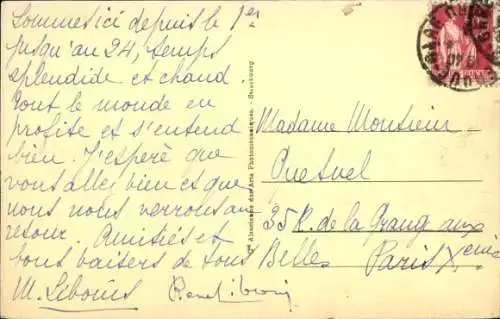 Sommes ici depuis le 1er
jusqu'au 24, temps
splendide et chaud.
Tout le monde en
profite et s'entend
bien. J'espère que
vous allez bien et que
nous nous verrons au
retour. Amitiés et
bons baisers de tous
M.
Madame Monsieur
35 R. de la Grange aux
Belles Paris Xème
Alsacienne des Arts Photomécaniques. - Strasbourg